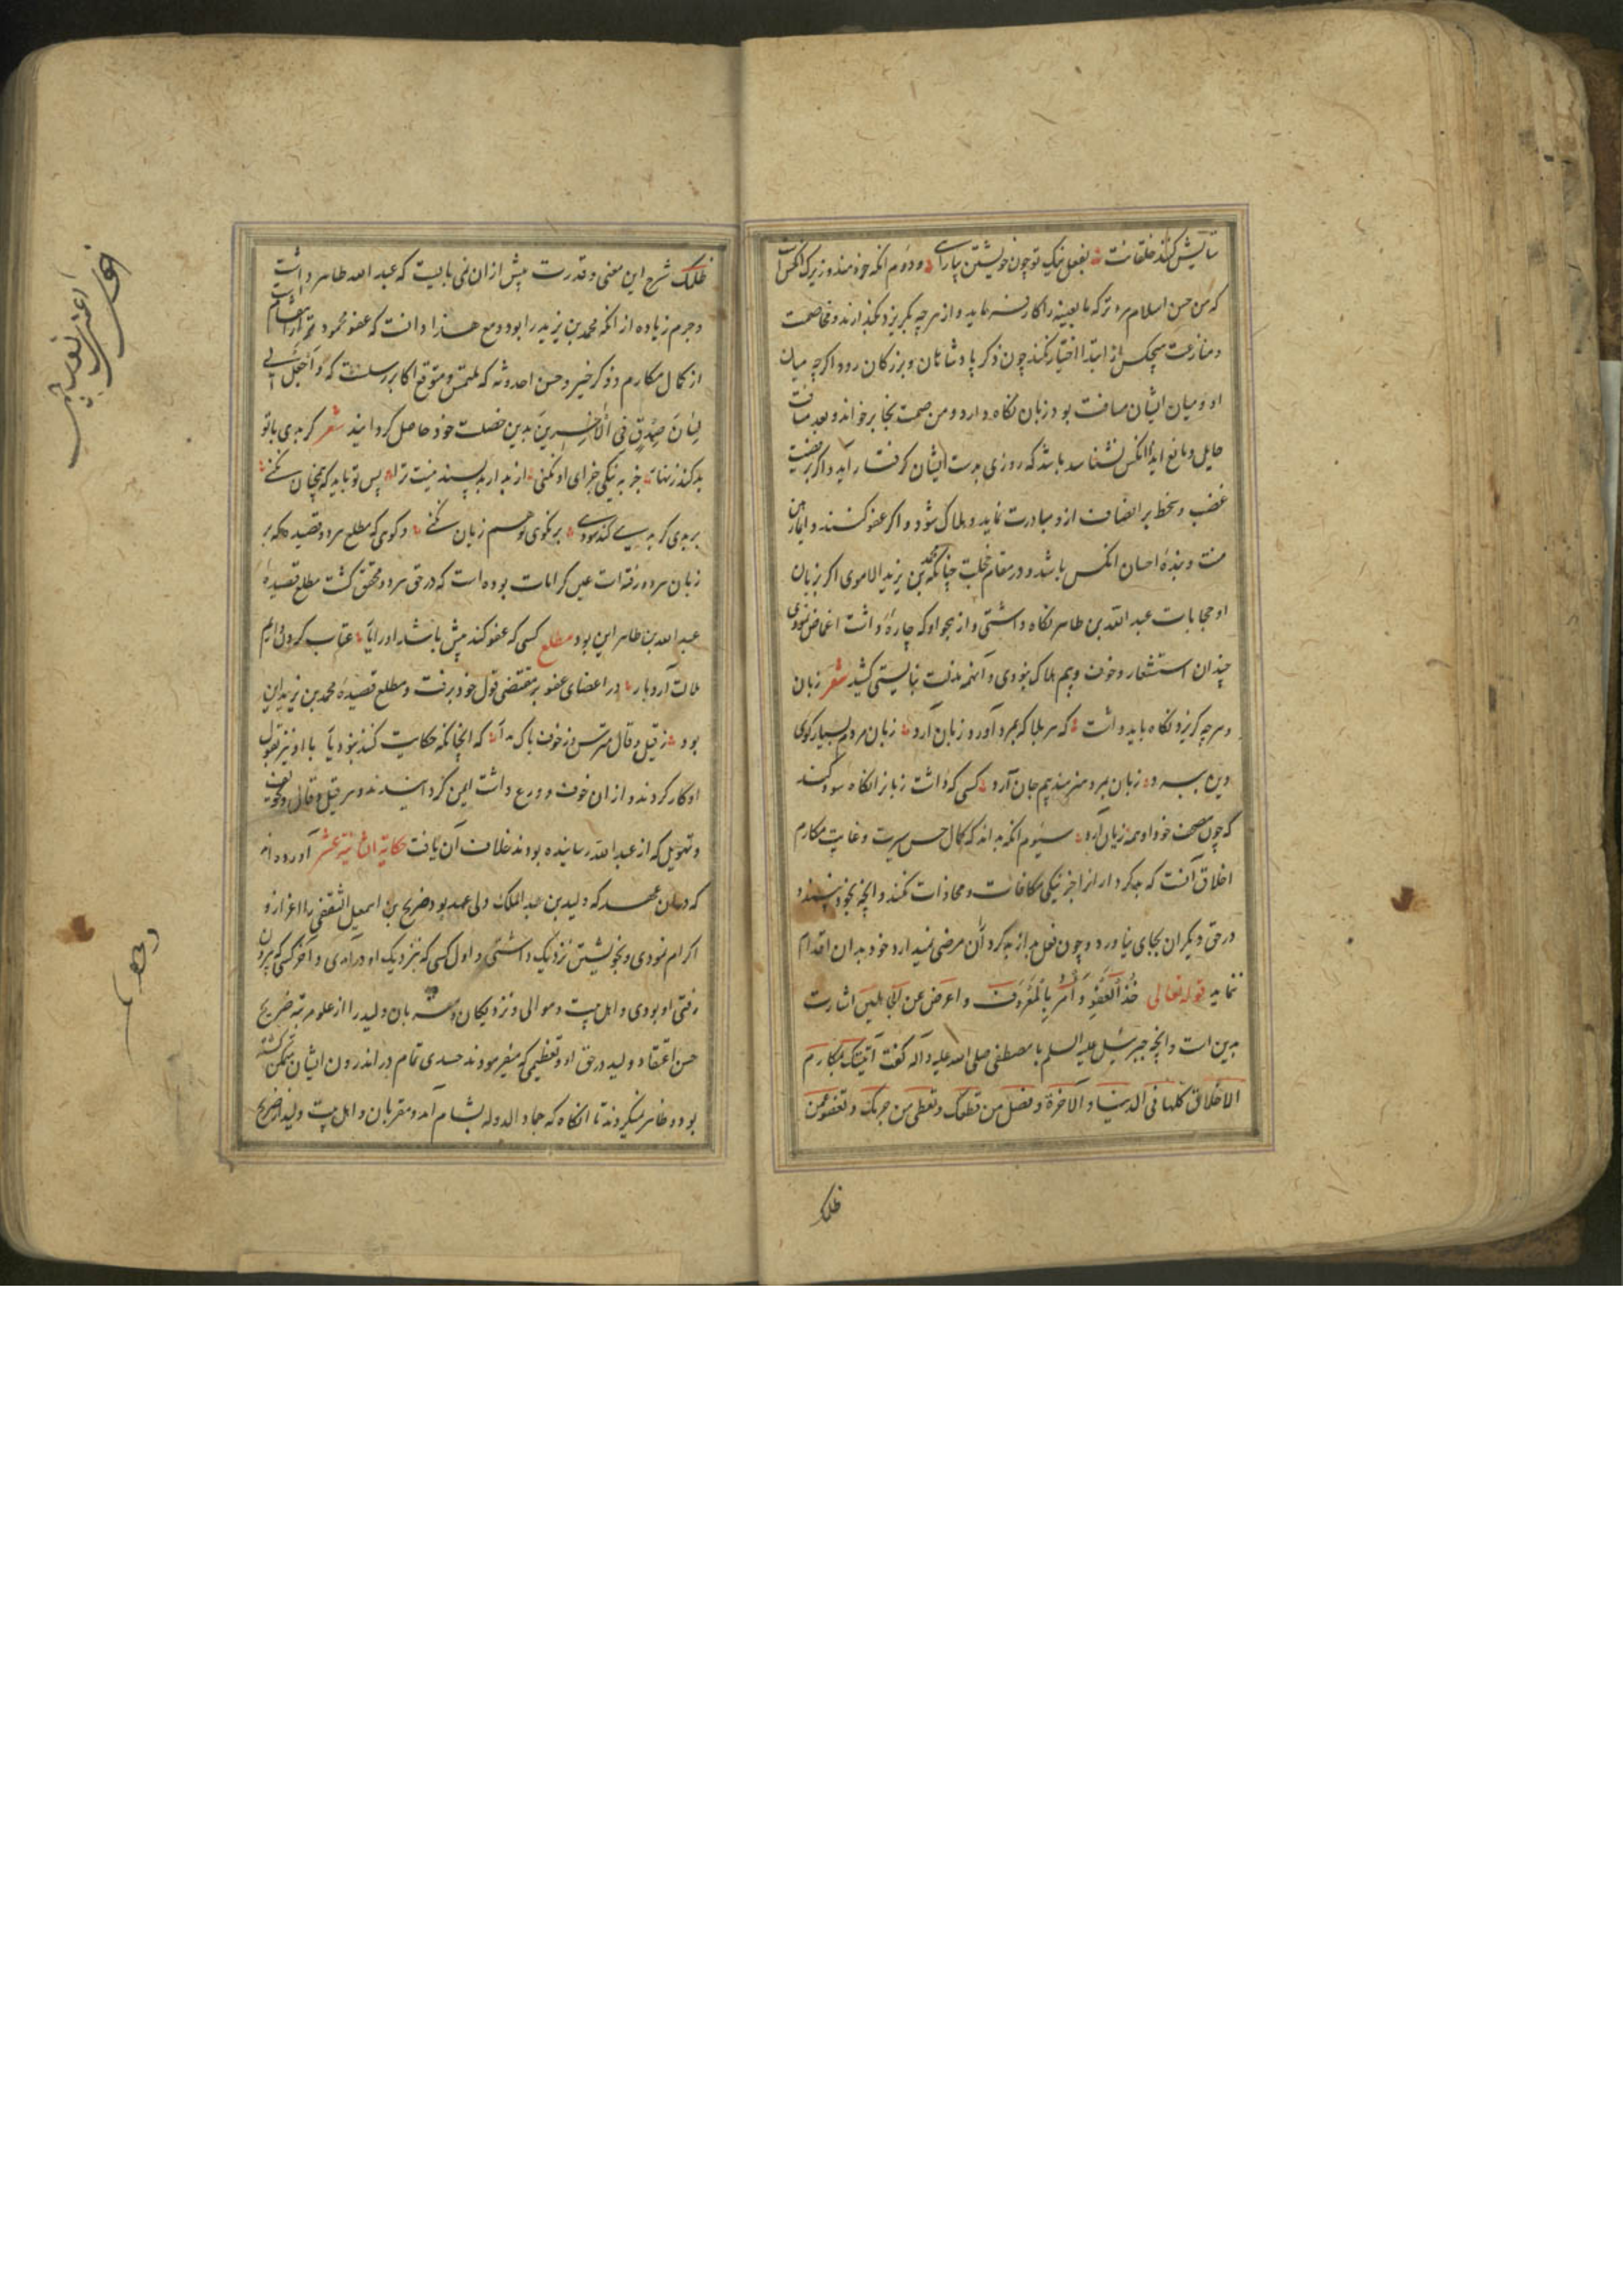 ستایش کنند خلقانت بفعل نیک تو چون خویشتن بیارایی و دوم انکه خردمند و زیرک انکس است
که من حسن اسلام مرء ترکه ما لا یعنیه را کار فرماید و از هرچه نکریزد بکذارند و مخاصمت
و منازعت هیچکس از ابتدا اختیار نکند چون ذکر پادشاهان و بزرکان رود اکرچه میان
او و میان ایشان مسافت بود زبان نکاه دارد و من صمت نجا برخواند و بعد مسافت
حایل و مانع ایذا انکس نشناسد باشد که روزی بدست ایشان کرفتار آید و اکر بر قضیت
غضب و سخط بر انصاف ازو مبادرت نماید و هلاک شود و اکر عفو کنند و ایمان رهین
منت و بندهٔ احسان انکس باشد و در مقام خجلت چنانکه محمد بن یزید الاموی اکر زبان
او مجابات عبد الله بن طاهر نکاه داشتی و از هجو او که چاره داشت اغماض نمودی
چندان استشعار و خوف و بیم هلاک نبودی و آنهمه مذلت نبایستی کشید شعر زبان
و هرچه کریزد نکاه باید داشت که هر بلا که بمرد آورد زبان آرد زبان مردم بسیار کوی
زبان مرد هنرمند بیم جان آرد کسی که داشت زبانرا نکاه سود کند
که چون مصحف خود او همه زیان آرد سیوم انکه بداند که کمال حسن سیرت و غایت مکارم
اخلاق آنست که بدکردار را جز نیکی مکافات و محاذات نکند و آنچه بخود نپسندد
در حق دیکران بجای نیاورد و چون فعل بد از بدکردار مرضی نمیدارد خود بدان اقدام
ننماید قوله تعالی خذ العفو و أمر بالمعروف و اعرض عن اشارت
بدین است و انچه جبرئیل علیه السلم با مصطفی صلی الله علیه و آله کفت آتیتک بمکارم
الاخلاق کلها فی الدنیا و الآخرة و تصل من قطعک و تعطی من حرمک و تعفو عمن
ظلمک
ظلمک شرح این معنی و قدرت بیش ازان نمی بایست که عبد الله طاهر داشت
و جرم زیاده از انکه محمد بن یزید را بود و مع هذا دانست که عفو محمودتر از انتقام است
از کمال مکارم و ذکر خیر و حسن احدوثه که ملتمس و متوقع اکابرست که و اجعل لی
لسان صدق فی الآخرین بدین خصلت خود حاصل کردانید شعر کر بدی با تو
بد کند زنهار جز به نیکی جزای او نکنی از بد ار بد پسند نیست ترا پس تو باید که همچنان نکنی
بر بدی کر بدیی کند سودی بر نکوی تو هم زیان نکنی و کویی که مطلع هر دو قصیده که بر
زبان هر دو رفته است عین کرامات بوده است که در حق هر دو محقق کشت مطلع قصیدهٔ
عبد الله بن طاهر این بود مطلع کسی که عفو کند پیش باشد او را یار عتاب کردن دایم
ملالت آرد بار در اعضای عفو بر مقتضی قول خود برفت و مطلع قصیدهٔ محمد بن یزید این
بود ز قیل و قال مترس و ز خوف باک مدار که انچانکه حکایت کنند نبود یار با او نیز بقول
او کار کردند و از ان خوف و ورع داشت ایمن کردانیدند و هر قیل و قالی و تخویف
و تهویل که از عبد الله رسانیده بودند خلاف آن یافت حکایة الثانیة عشر آورده اند
که دران عهد که ولید بن عبد الملک ولی عهد بود ضریح بن اسمعیل الثقفی را اعزاز و
اکرام نمودی و بخویشتن نزدیک داشتی و اول کسی که بنزدیک او درآمدی و آخر کسی که بیرون
رفتی او بودی و اهل بیت و موالی و نزدیکان و مقربان ولید را از علو مرتبه ضریح
حسن اعتقاد ولید در حق او و تعظیمی که میفرمودند حسدی تمام در اندرون ایشان متمکن کشته
بود و ظاهر نمیکردند تا انکاه که حماد الدوله بشام آمد و مقربان و اهل بیت ولید از ضریح